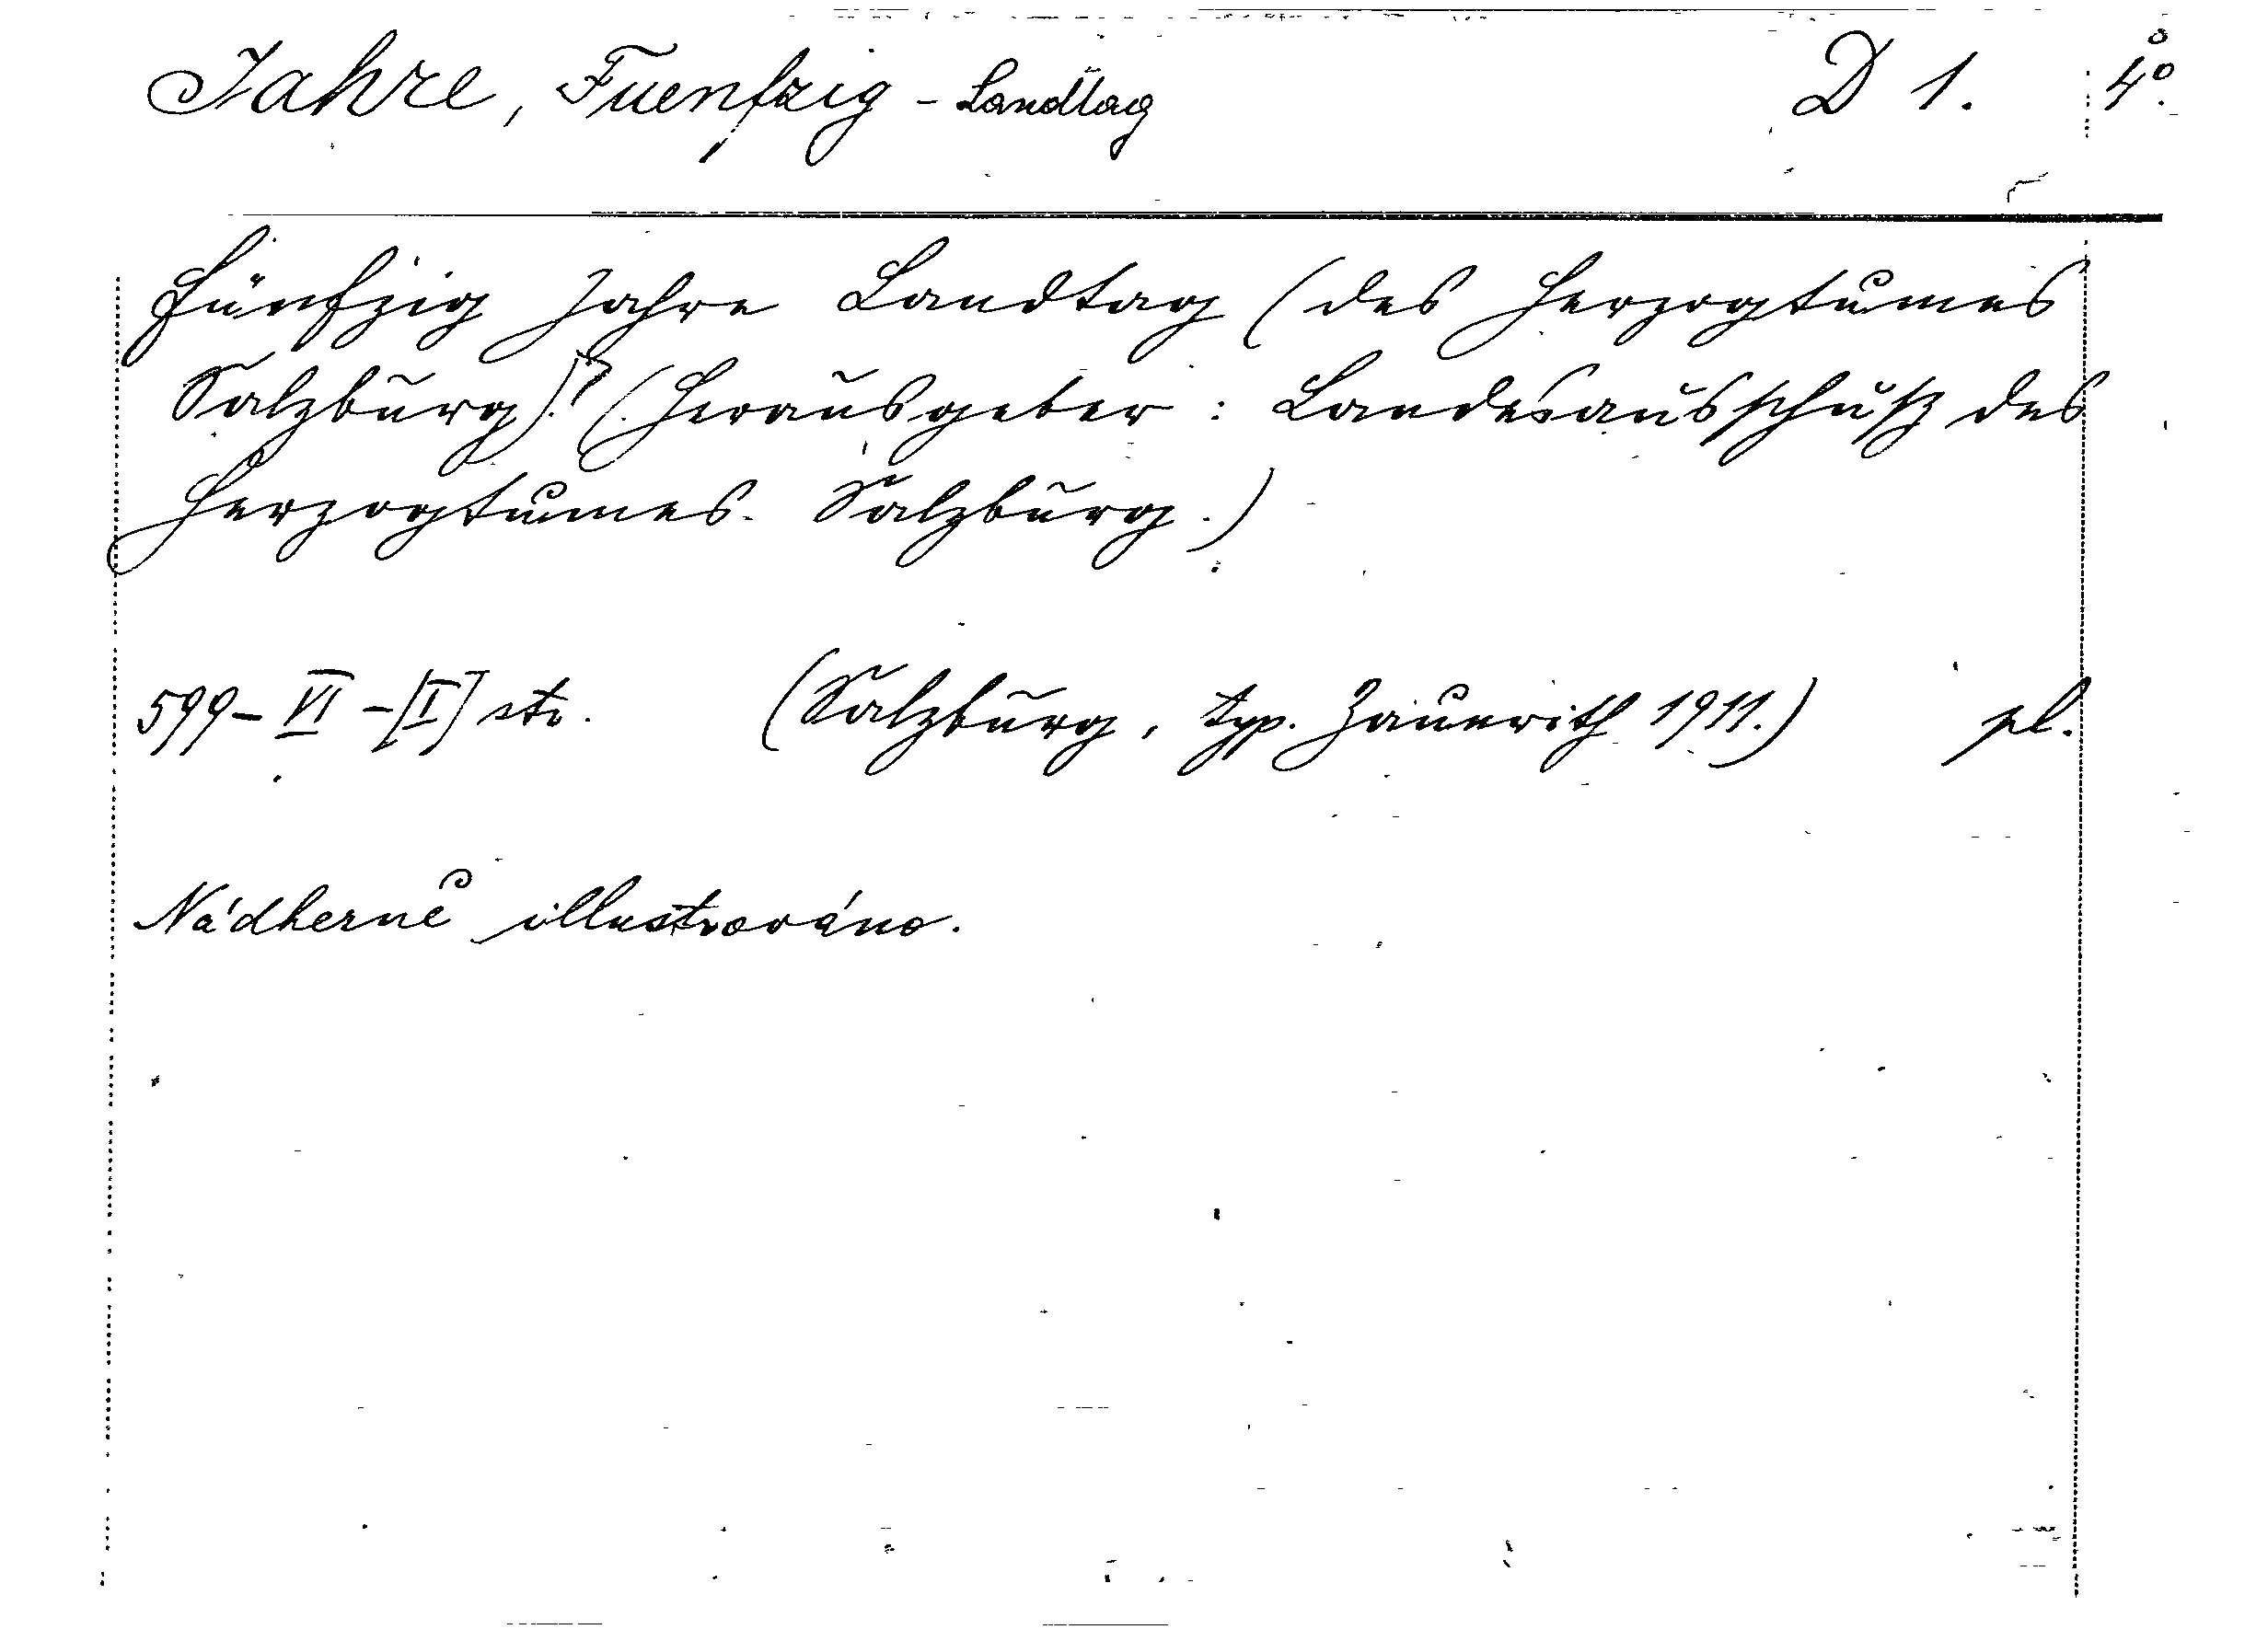 Jahre, Fuenfzig - Landtag D 1. 4°.
Fünfzig Jahre Landtag (des Herzogtumes
Salzburg). (Herausgeber: Landesausschuß des
Herzogtumes Salzburg.)
599-VI-[I] str. (Salzburg, typ. Zaunrith 1911.) pl.
Nádherně illustrováno.